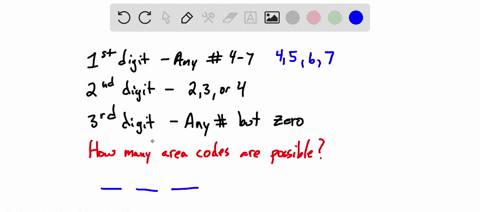 1st digit - Any # 4-7 4,5,6,7
2nd digit - 2,3, or 4
3rd digit - Any # but zero
How many area codes are possible?